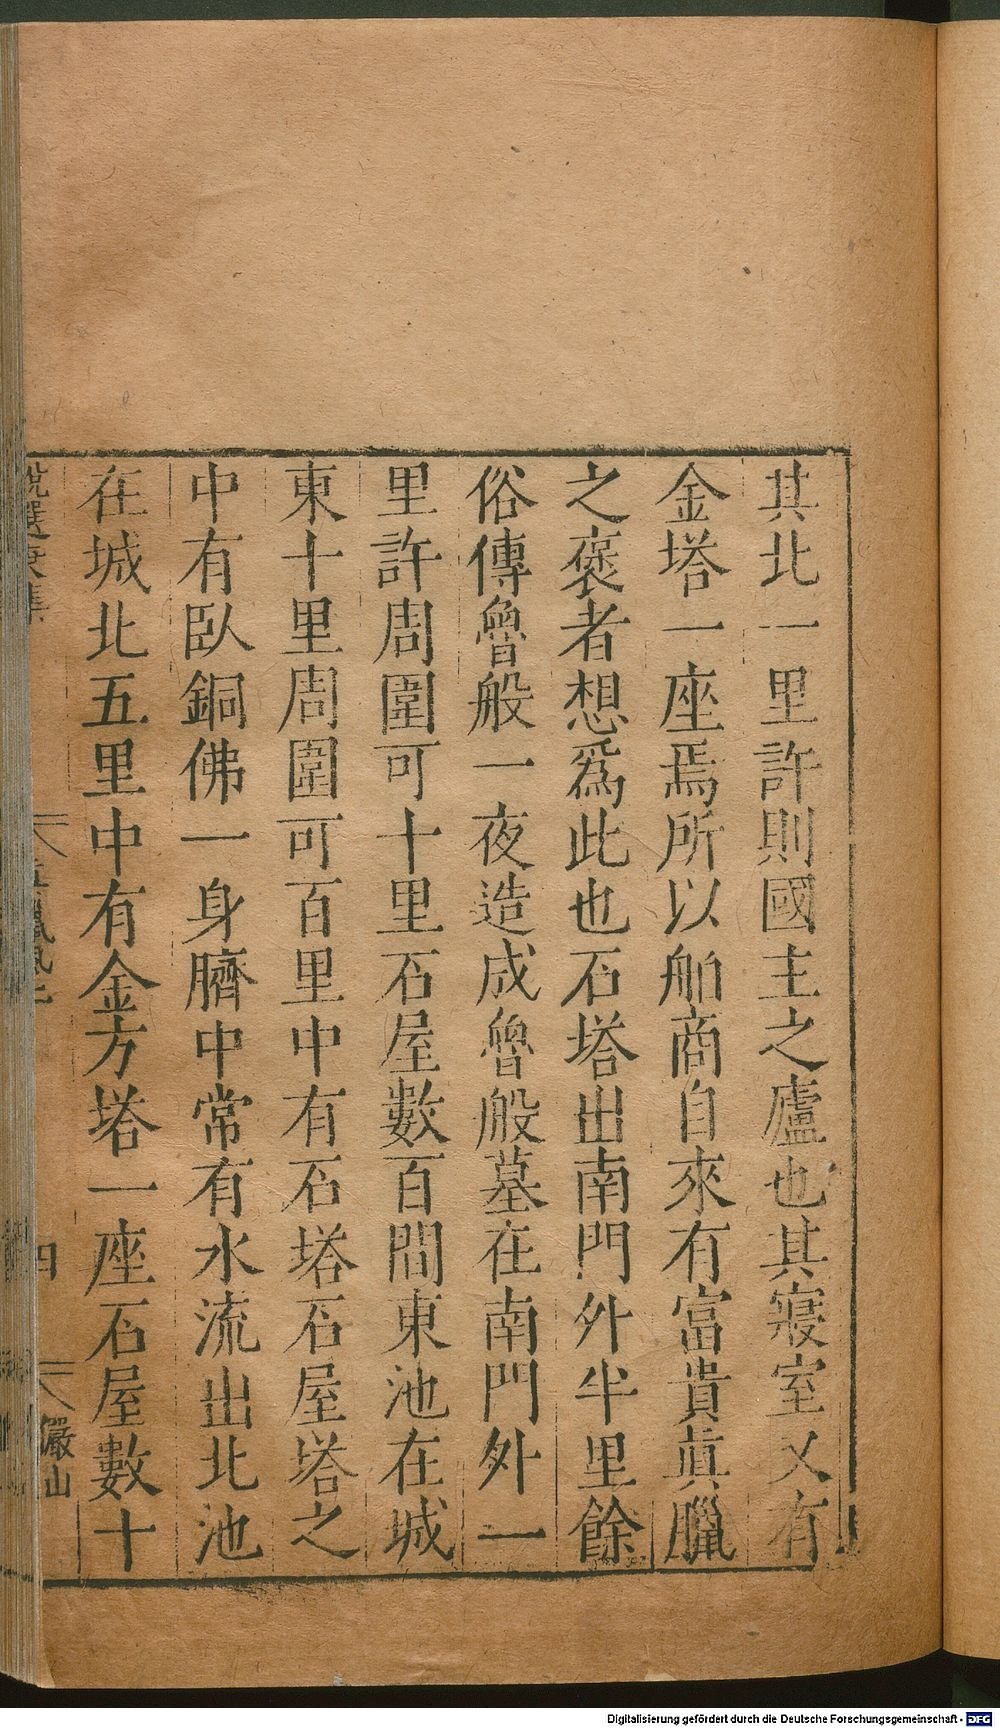 其北一里許則國主之廬也其寢室又有
金塔一座焉所以舶商自來有富貴眞臘
之褒者想爲此也石塔出南門外半里餘
俗傳魯般一夜造成魯般墓在南門外一
里許周圍可十里石屋數百間東池在城
東十里周圍可百里中有石塔石屋塔之
中有臥銅佛一身臍中常有水流出北池
在城北五里中有金方塔一座石屋數十
四
儼山
Digitalisierung gefördert durch die Deutsche Forschungsgemeinschaft - DFG